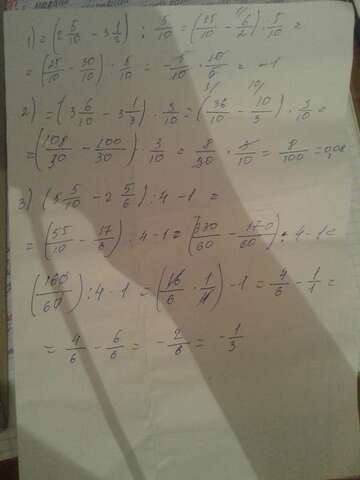 1) = (2 5/10 - 3 1/2) : 5/10 = (25/10 - 6/2) · 5/10 =
= (25/10 - 30/10) · 5/10 = - 5/10 · 10/5 = -1
2) = (3 6/10 - 3 1/3) · 3/10 = (36/10 - 10/3) · 3/10 =
= (108/30 - 100/30) · 3/10 = 8/30 · 3/10 = 8/100 = 0,08
3) (5 5/10 - 2 5/6) : 4 - 1 =
= (55/10 - 17/6) : 4 - 1 = (330/60 - 170/60) : 4 - 1 =
(160/60) : 4 - 1 = (16/6 · 1/4) - 1 = 4/6 - 1/1 =
= 4/6 - 6/6 = - 2/6 = - 1/3